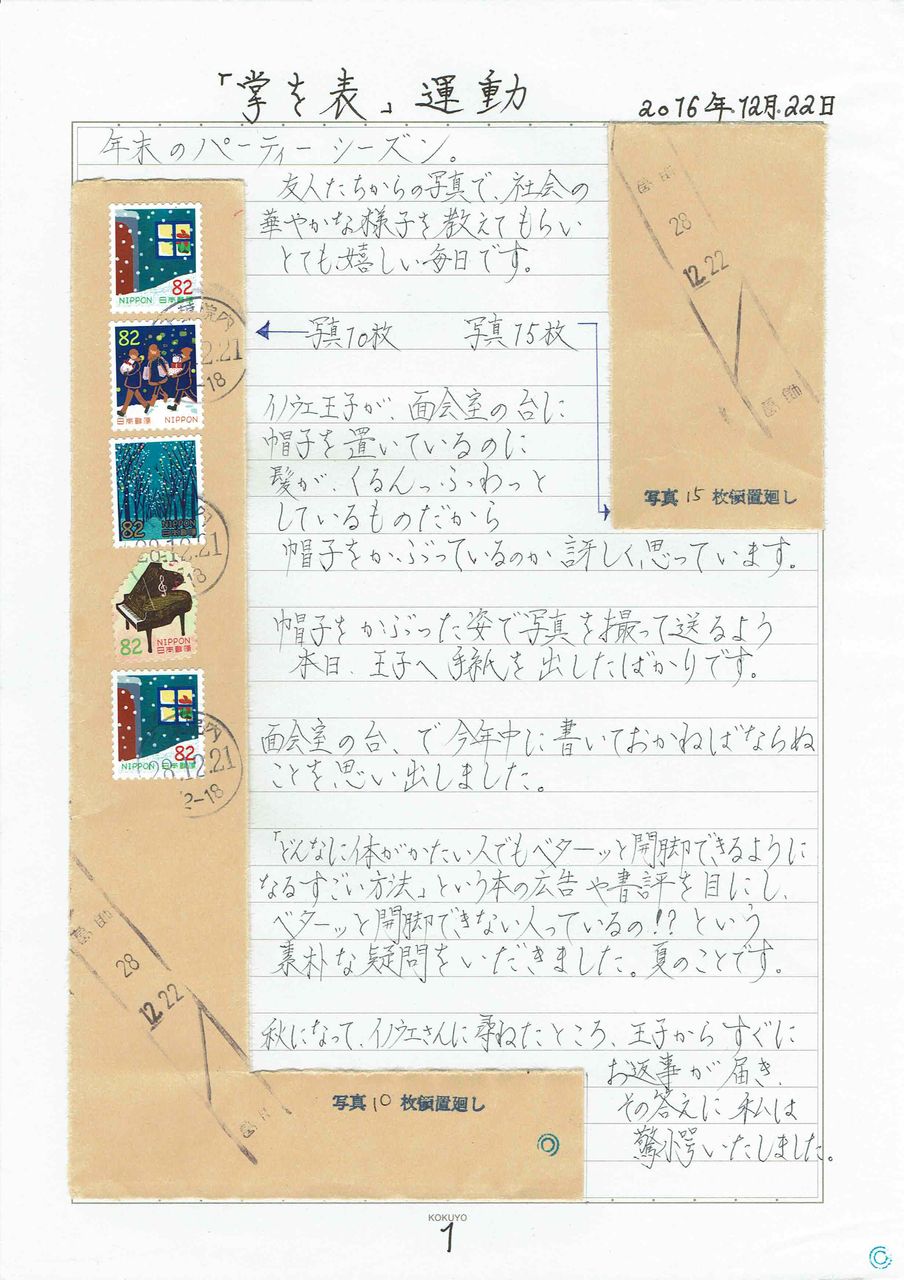 「掌を表」運動
2016年.12月.22日
年末のパーティーシーズン。
友人たちからの写真で、社会の
華やかな様子を教えてもらい
とても嬉しい毎日です。
写真10枚 写真15枚
イノウエ王子が、面会室の台に
帽子を置いているのに
髪が、くるんっふわっと
しているものだから
帽子をかぶっているのか訝しく思っています。
帽子をかぶった姿で写真を撮って送るよう
本日、王子へ手紙を出したばかりです。
面会室の台、で今年中に書いておかねばならぬ
ことを思い出しました。
「どんなに体がかたい人でもベターッと開脚できるように
なるすごい方法」という本の広告や書評を目にし、
ベターッと開脚できない人っているの!?という
素朴な疑問をいだきました。夏のことです。
秋になって、イノウエさんに尋ねたところ、王子からすぐに
お返事が届き、
その答えに私は
驚愕いたしました。
82
NIPPON 日本郵便
82
日本郵便 NIPPON
82
NIPPON
日本郵便
82
NIPPON
日本郵便
82
NIPPON 日本郵便
院内
12.21
-18
28.12.21
18
院内
28.12.21
2-18
28
12.22
写真15枚領置廻し
28
12.22
写真10枚領置廻し
KOKUYO
1